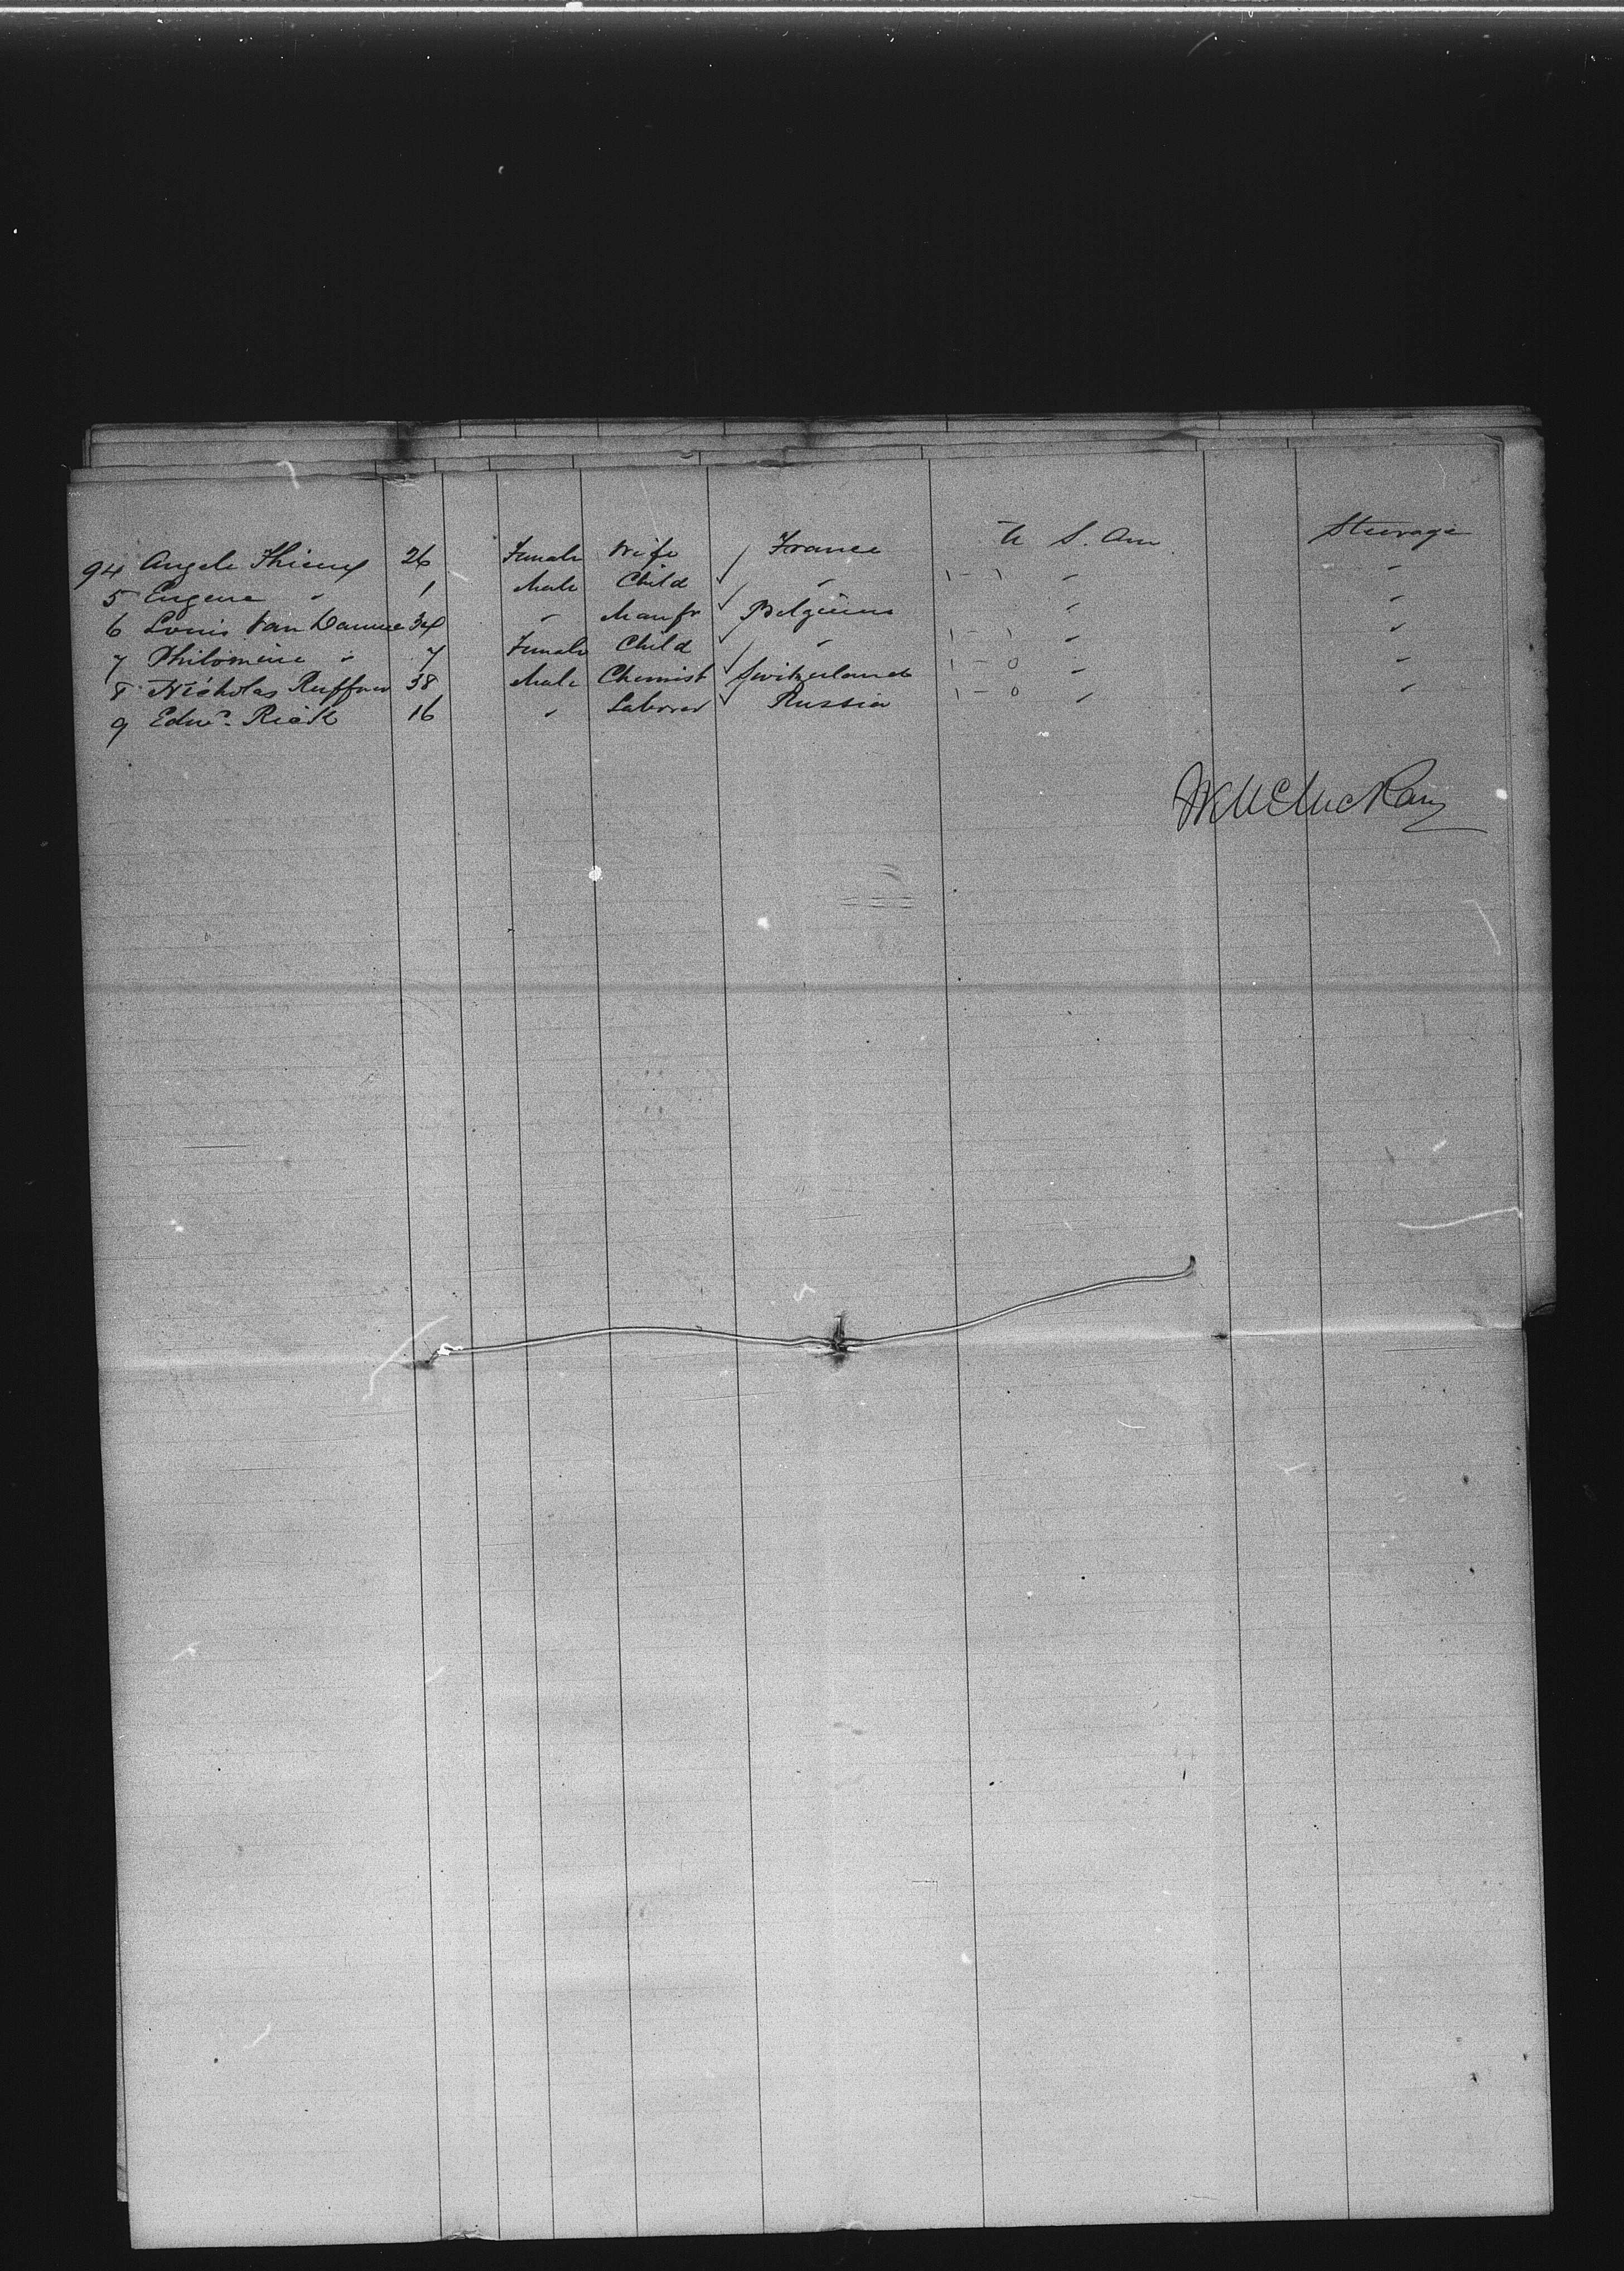 94 Angele 26 Female Wife ✓ France U S. Am Steerage
5 Eugene " 1 Male Child ✓ " 1-1 " "
6 Louis Van Damme 34 " Manfr ✓ Belgium " "
7 Philomène " 7 Female Child ✓ " 1-1 " "
8 Nicholas Ruffner 38 Male Chemist ✓ Switzerland 1-0 " "
9 Edwd. 16 " Laborer ✓ Russia 1-0 " "